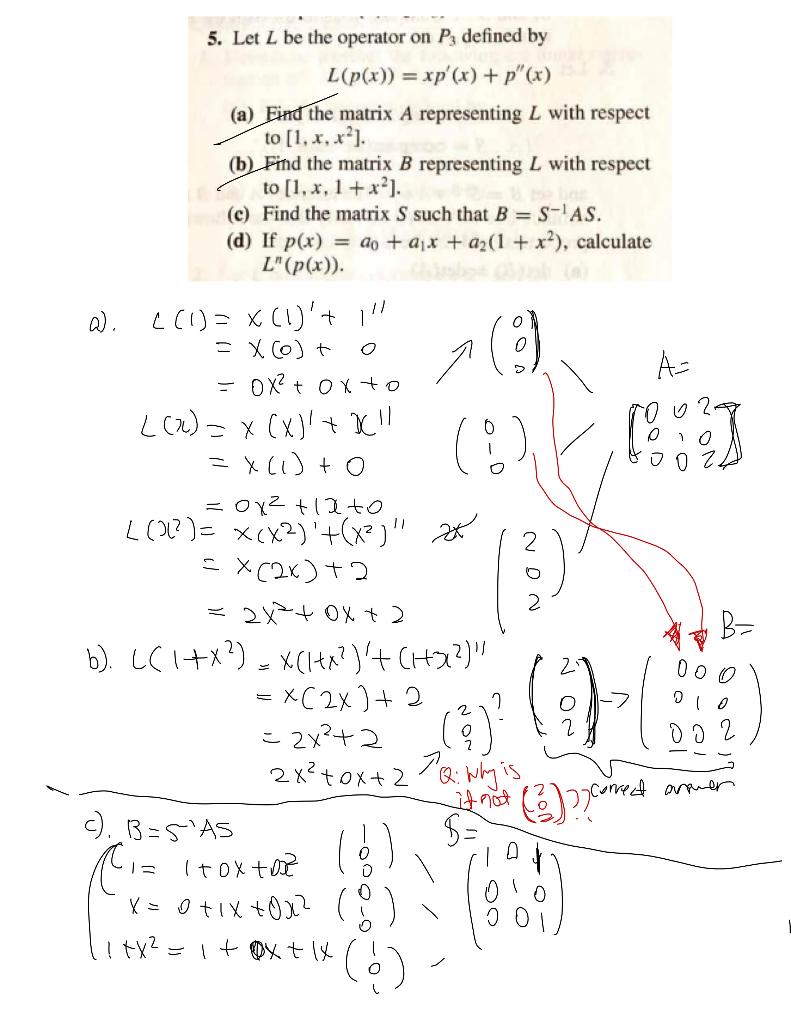 5. Let L be the operator on P₃ defined by
L(p(x)) = xp′(x) + p″(x)
(a) Find the matrix A representing L with respect
to [1, x, x²].
(b) Find the matrix B representing L with respect
to [1, x, 1 + x²].
(c) Find the matrix S such that B = S⁻¹AS.
(d) If p(x) = a₀ + a₁x + a₂(1 + x²), calculate
Lⁿ(p(x)).
a). L(1) = x(1)' + 1''
= x(0) + 0
= 0x² + 0x + 0
(0 0 0)
A=
[0 0 2
0 1 0
0 0 2]
L(x) = x(x)' + x''
= x(1) + 0
= 0x² + 1x + 0
(0 1 0)
L(x²) = x(x²)' + (x²)'' 2x
= x(2x) + 2
= 2x² + 0x + 2
(2 0 2)
b). L(1+x²) = x(1+x²)' + (1+x²)''
= x(2x) + 2
= 2x² + 2
2x² + 0x + 2
(2 0 2)?
(2 0 2) →
B=
(0 0 0
0 1 0
0 0 2)
Q: Why is
it not (2 0 2)??
correct answer
c). B = S⁻¹AS
1 = 1 + 0x + 0x² (1 0 0)
x = 0 + 1x + 0x² (0 1 0)
1+x² = 1 + 0x + 1x (1 0 1)
S=
(1 0 1
0 1 0
0 0 1)